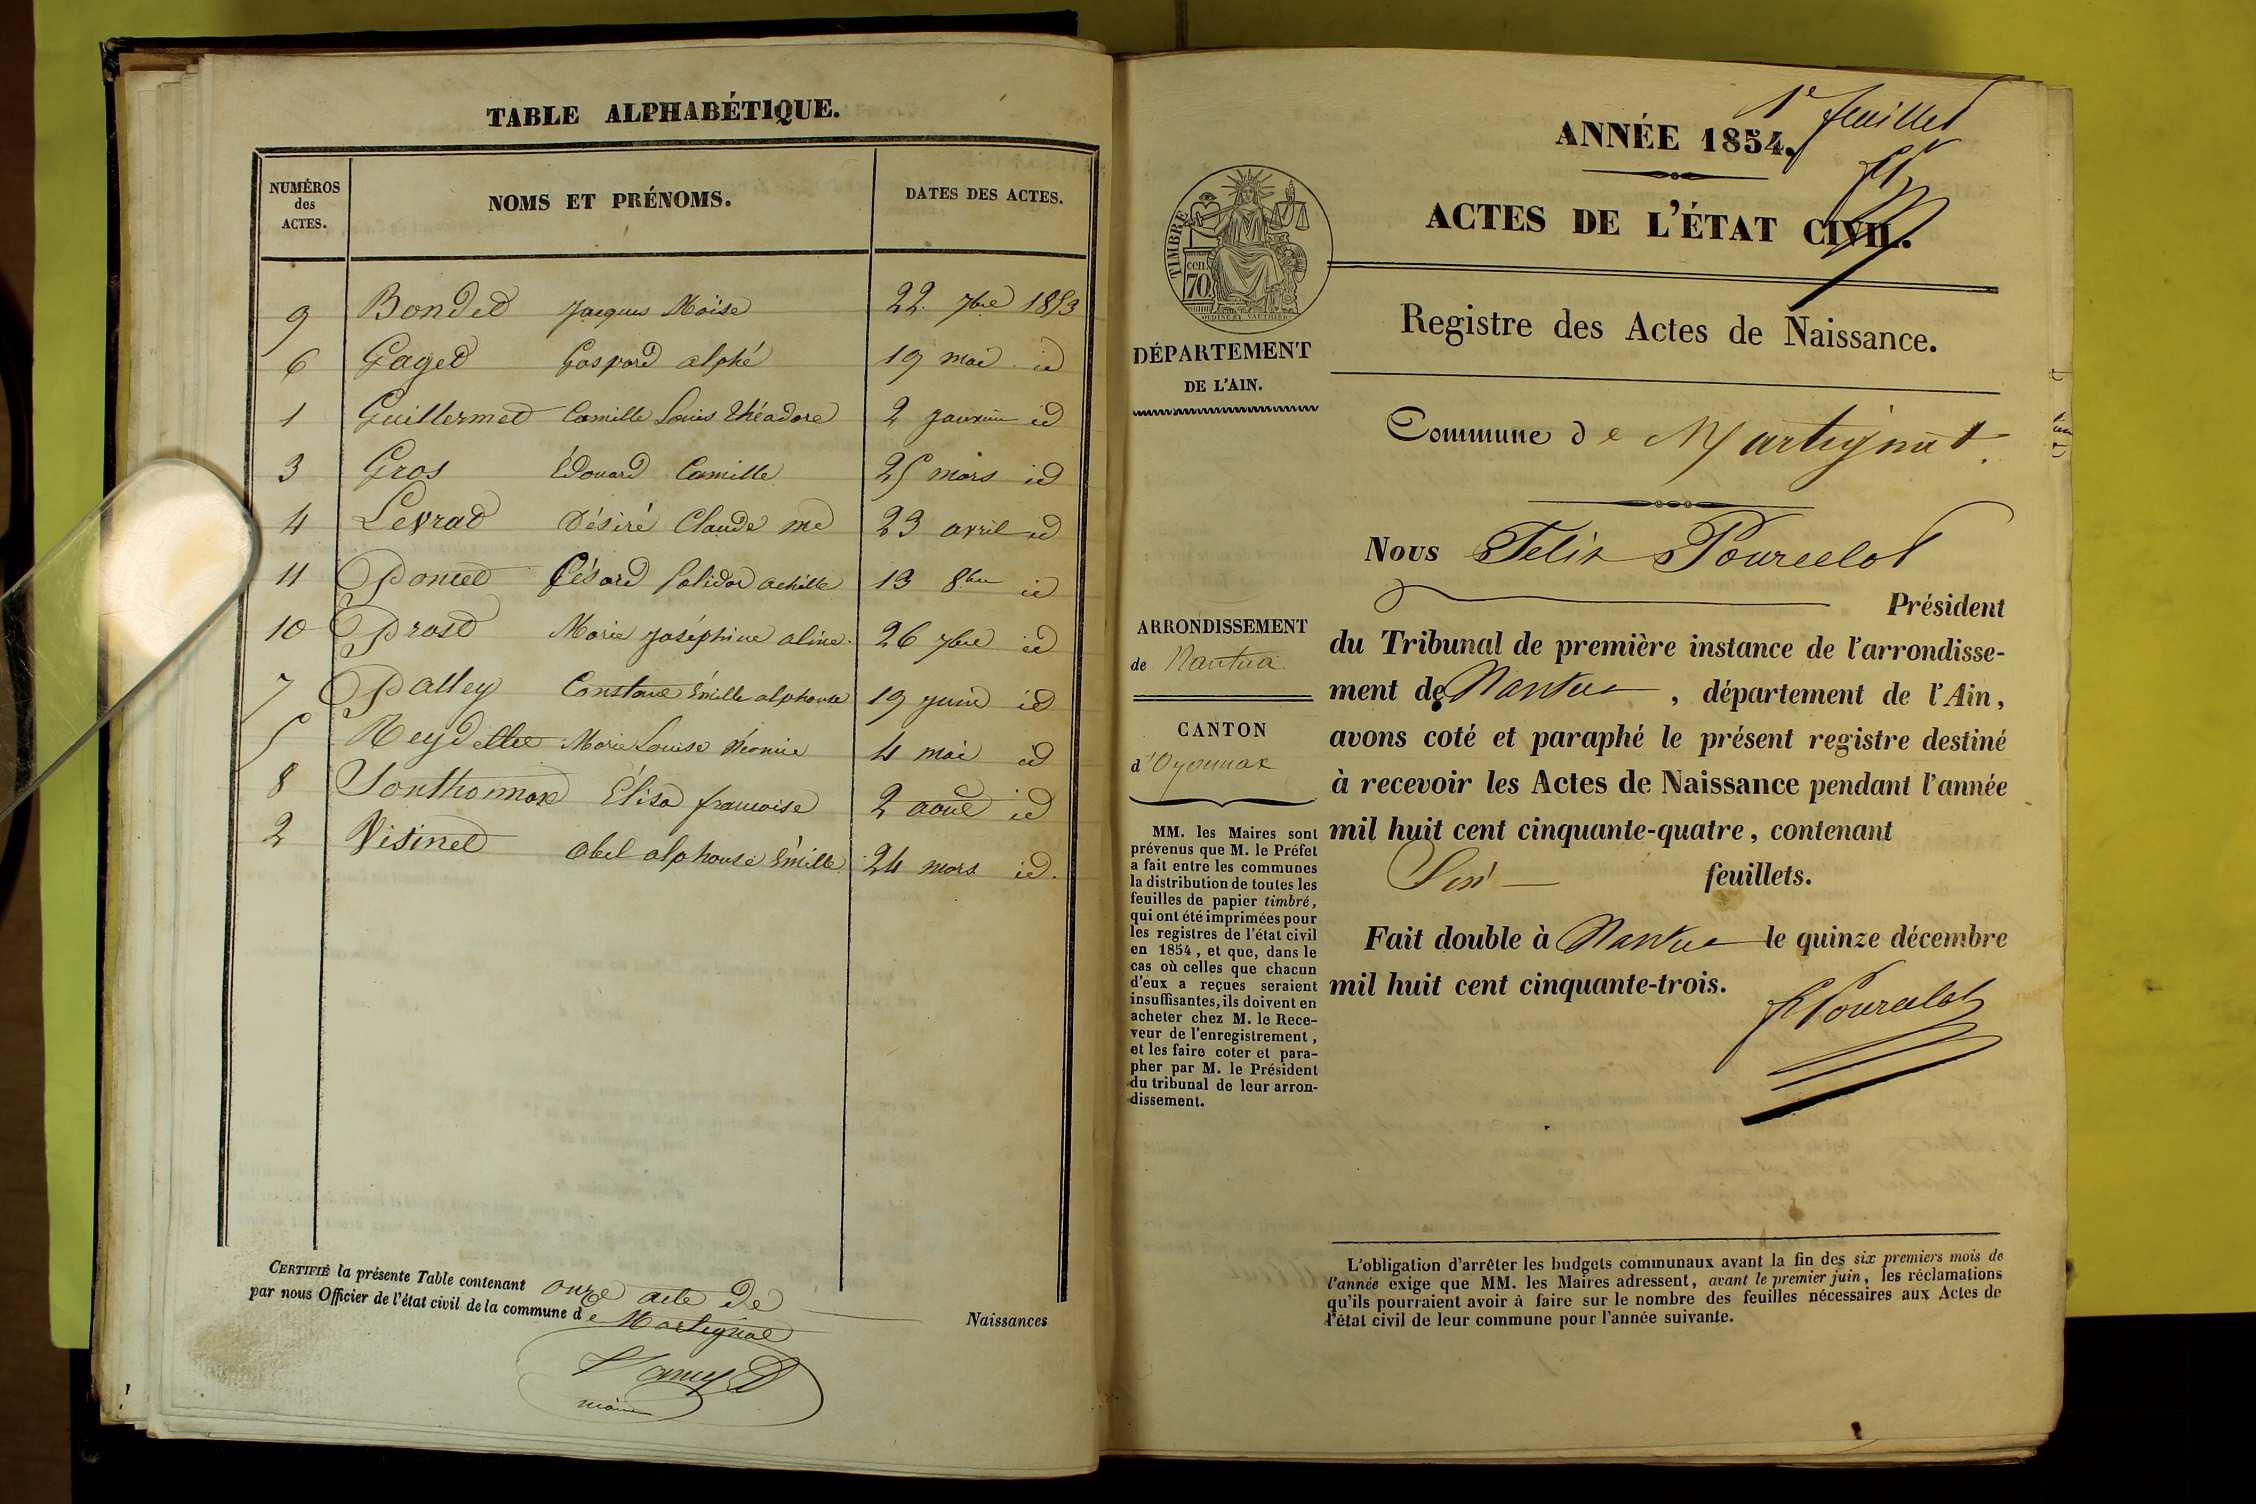 TABLE ALPHABÉTIQUE.
NUMÉROS des ACTES. NOMS ET PRÉNOMS. DATES DES ACTES.
9 Bondet Jacques Moïse 22 7bre 1853
6 Gaget Gaspard alphé 19 mai id
1 Guillermet Camille Louis Théodore 2 Janvier id
3 Gros Édouard Camille 25 mars id
4 Levrat Désiré Claude me 23 avril id
11 Poncet Césard Polidor achille 13 8bre id
10 Prost Marie Joséphine aline 26 7bre id
7 Palley Constant Émille alphonse 19 juin id
5 Reydellet Marie Louise Néomie 4 mai id
8 Sonthonnax Élisa francoise 2 aout id
2 Visinet abel alphonse Émille 24 mars id.
CERTIFIÉ la présente Table contenant onze acte de Naissances
par nous Officier de l'état civil de la commune de Martignat
maire
1er feuillet
ANNÉE 1854.
ACTES DE L'ÉTAT CIVIL.
TIMBRE
cen. 70
OUDINÉ ET VAUTHIER
DÉPARTEMENT
DE L'AIN.
Registre des Actes de Naissance.
Commune de Martignat.
Nous Félix Pourcelot
Président
ARRONDISSEMENT
de Nantua
CANTON
d'Oyonnax
du Tribunal de première instance de l'arrondisse-
ment de Nantua, département de l'Ain,
avons coté et paraphé le présent registre destiné
à recevoir les Actes de Naissance pendant l'année
mil huit cent cinquante-quatre, contenant
Six feuillets.
Fait double à Nantua le quinze décembre
mil huit cent cinquante-trois.
F Pourcelot
MM. les Maires sont
prévenus que M. le Préfet
a fait entre les communes
la distribution de toutes les
feuilles de papier timbré,
qui ont été imprimées pour
les registres de l'état civil
en 1854, et que, dans le
cas où celles que chacun
d'eux a reçues seraient
insuffisantes, ils doivent en
acheter chez M. le Rece-
veur de l'enregistrement,
et les faire coter et para-
pher par M. le Président
du tribunal de leur arron-
dissement.
L'obligation d'arrêter les budgets communaux avant la fin des six premiers mois de
l'année exige que MM. les Maires adressent, avant le premier juin, les réclamations
qu'ils pourraient avoir à faire sur le nombre des feuilles nécessaires aux Actes de
l'état civil de leur commune pour l'année suivante.